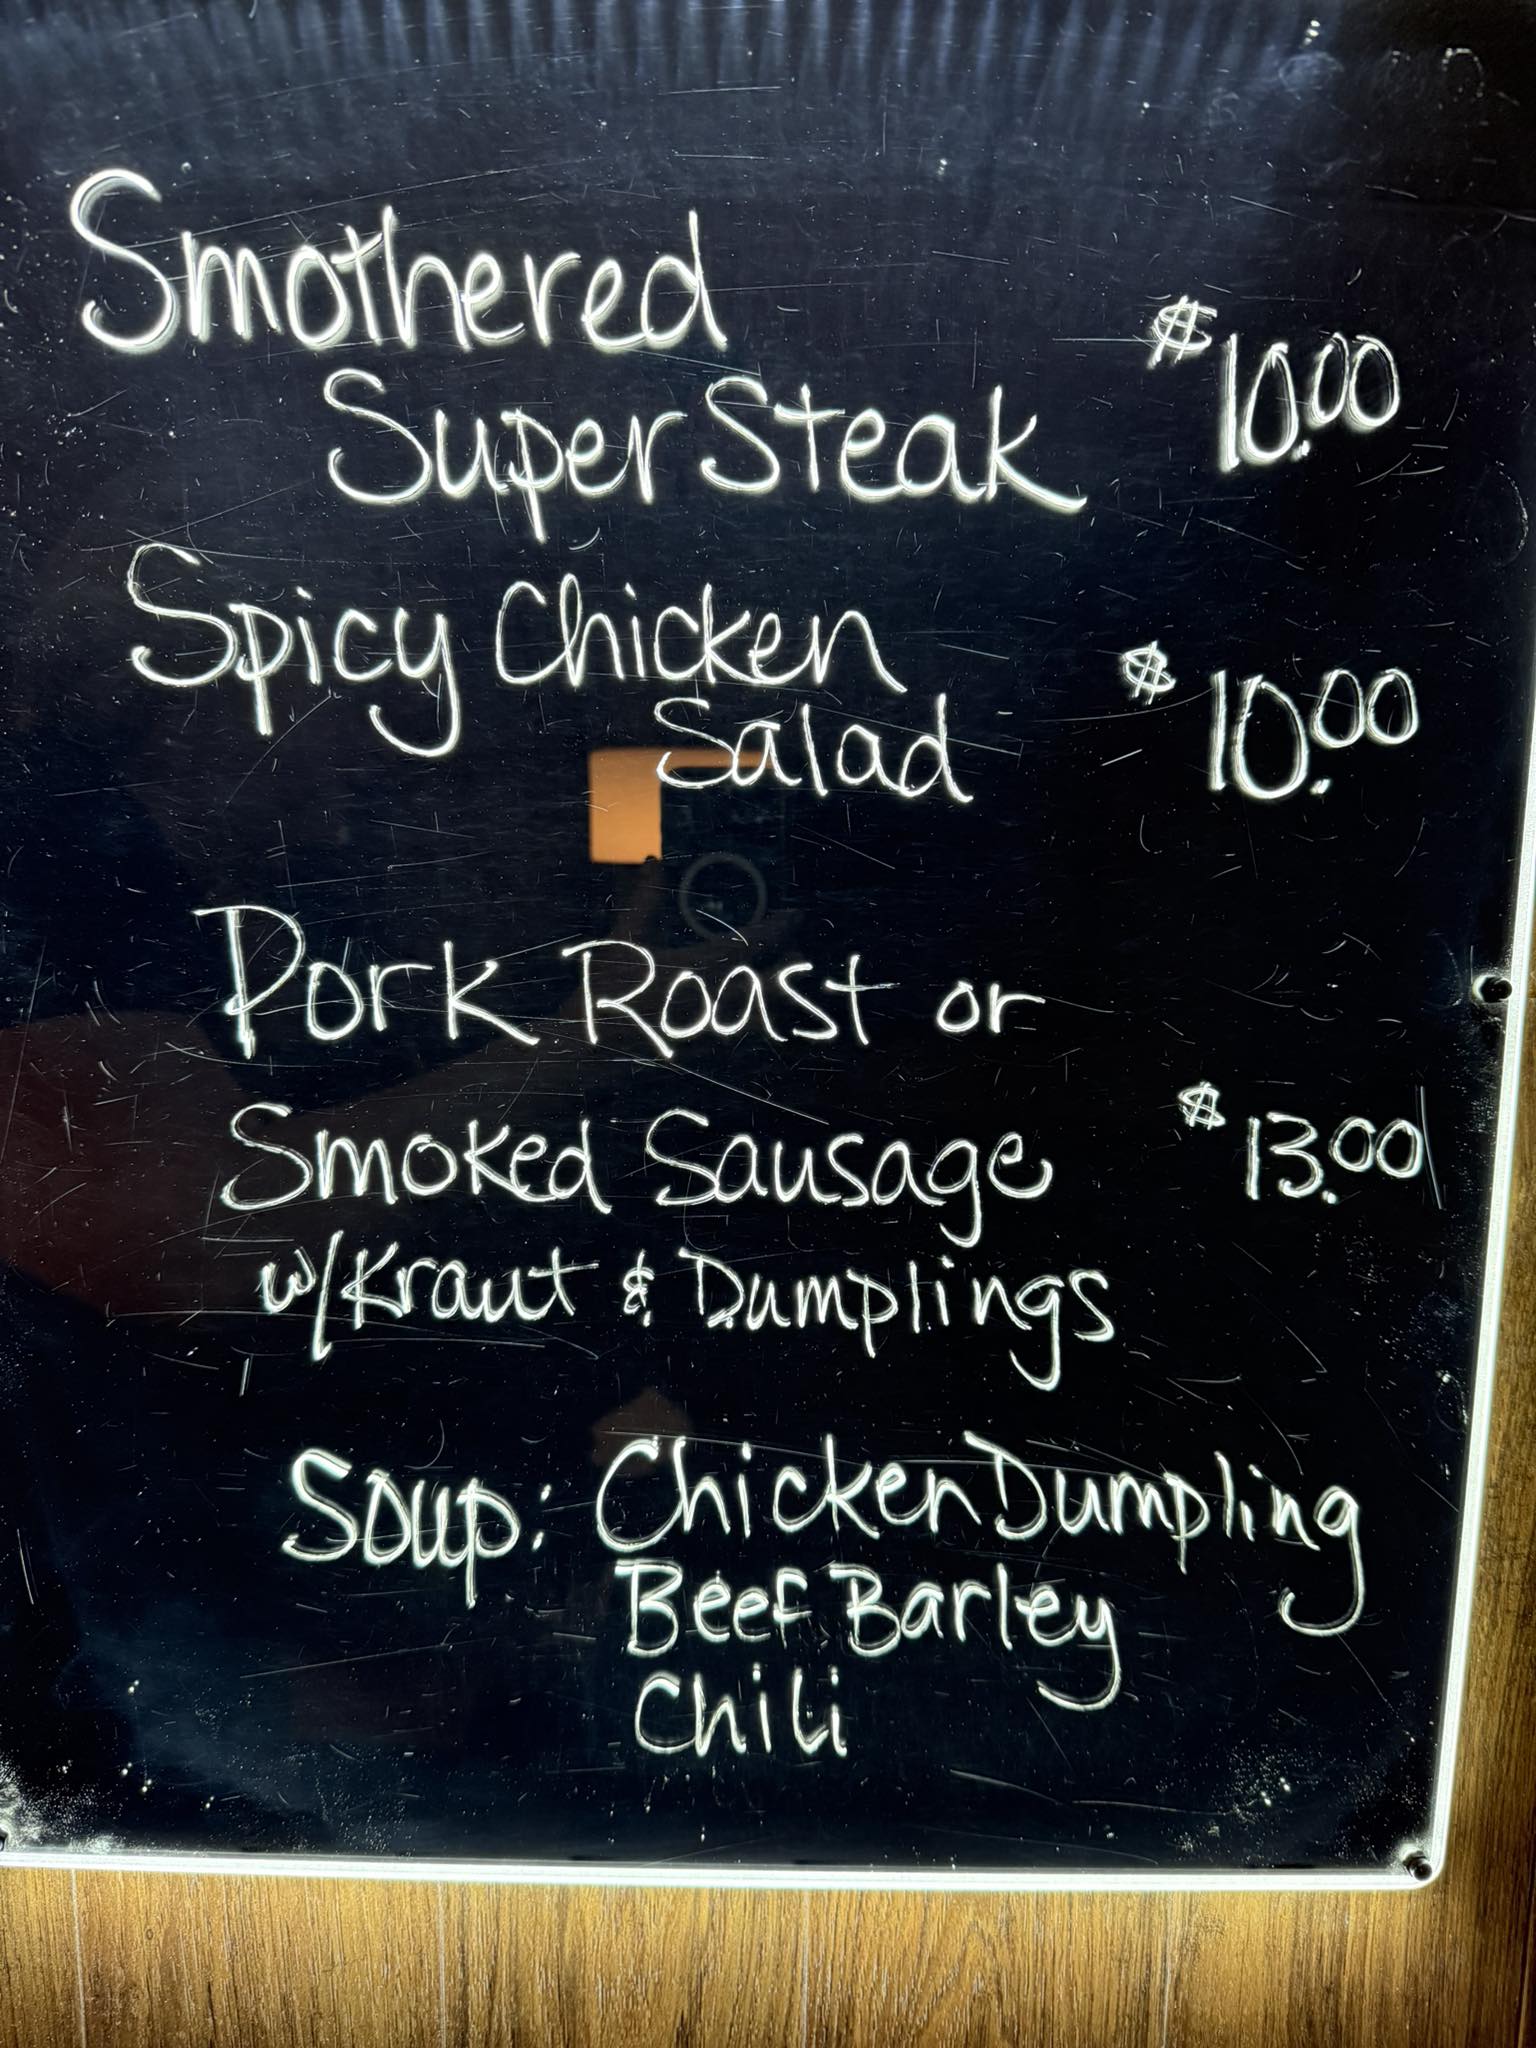 Smothered
Super Steak $10.00
Spicy Chicken
Salad $10.00
Pork Roast or
Smoked Sausage $13.00
w/Kraut & Dumplings
Soup: Chicken Dumpling
Beef Barley
Chili